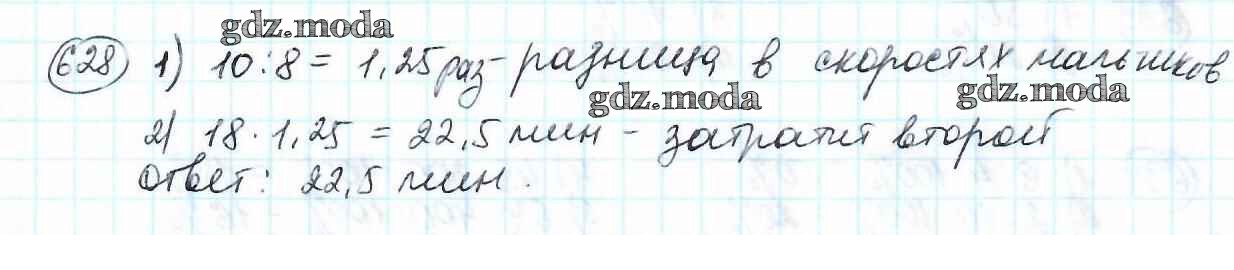 gdz.moda
628 1) 10:8 = 1,25 раз - разница в скоростях мальчиков
gdz.moda gdz.moda
2) 18 · 1,25 = 22,5 мин - затратит второй
Ответ: 22,5 мин.